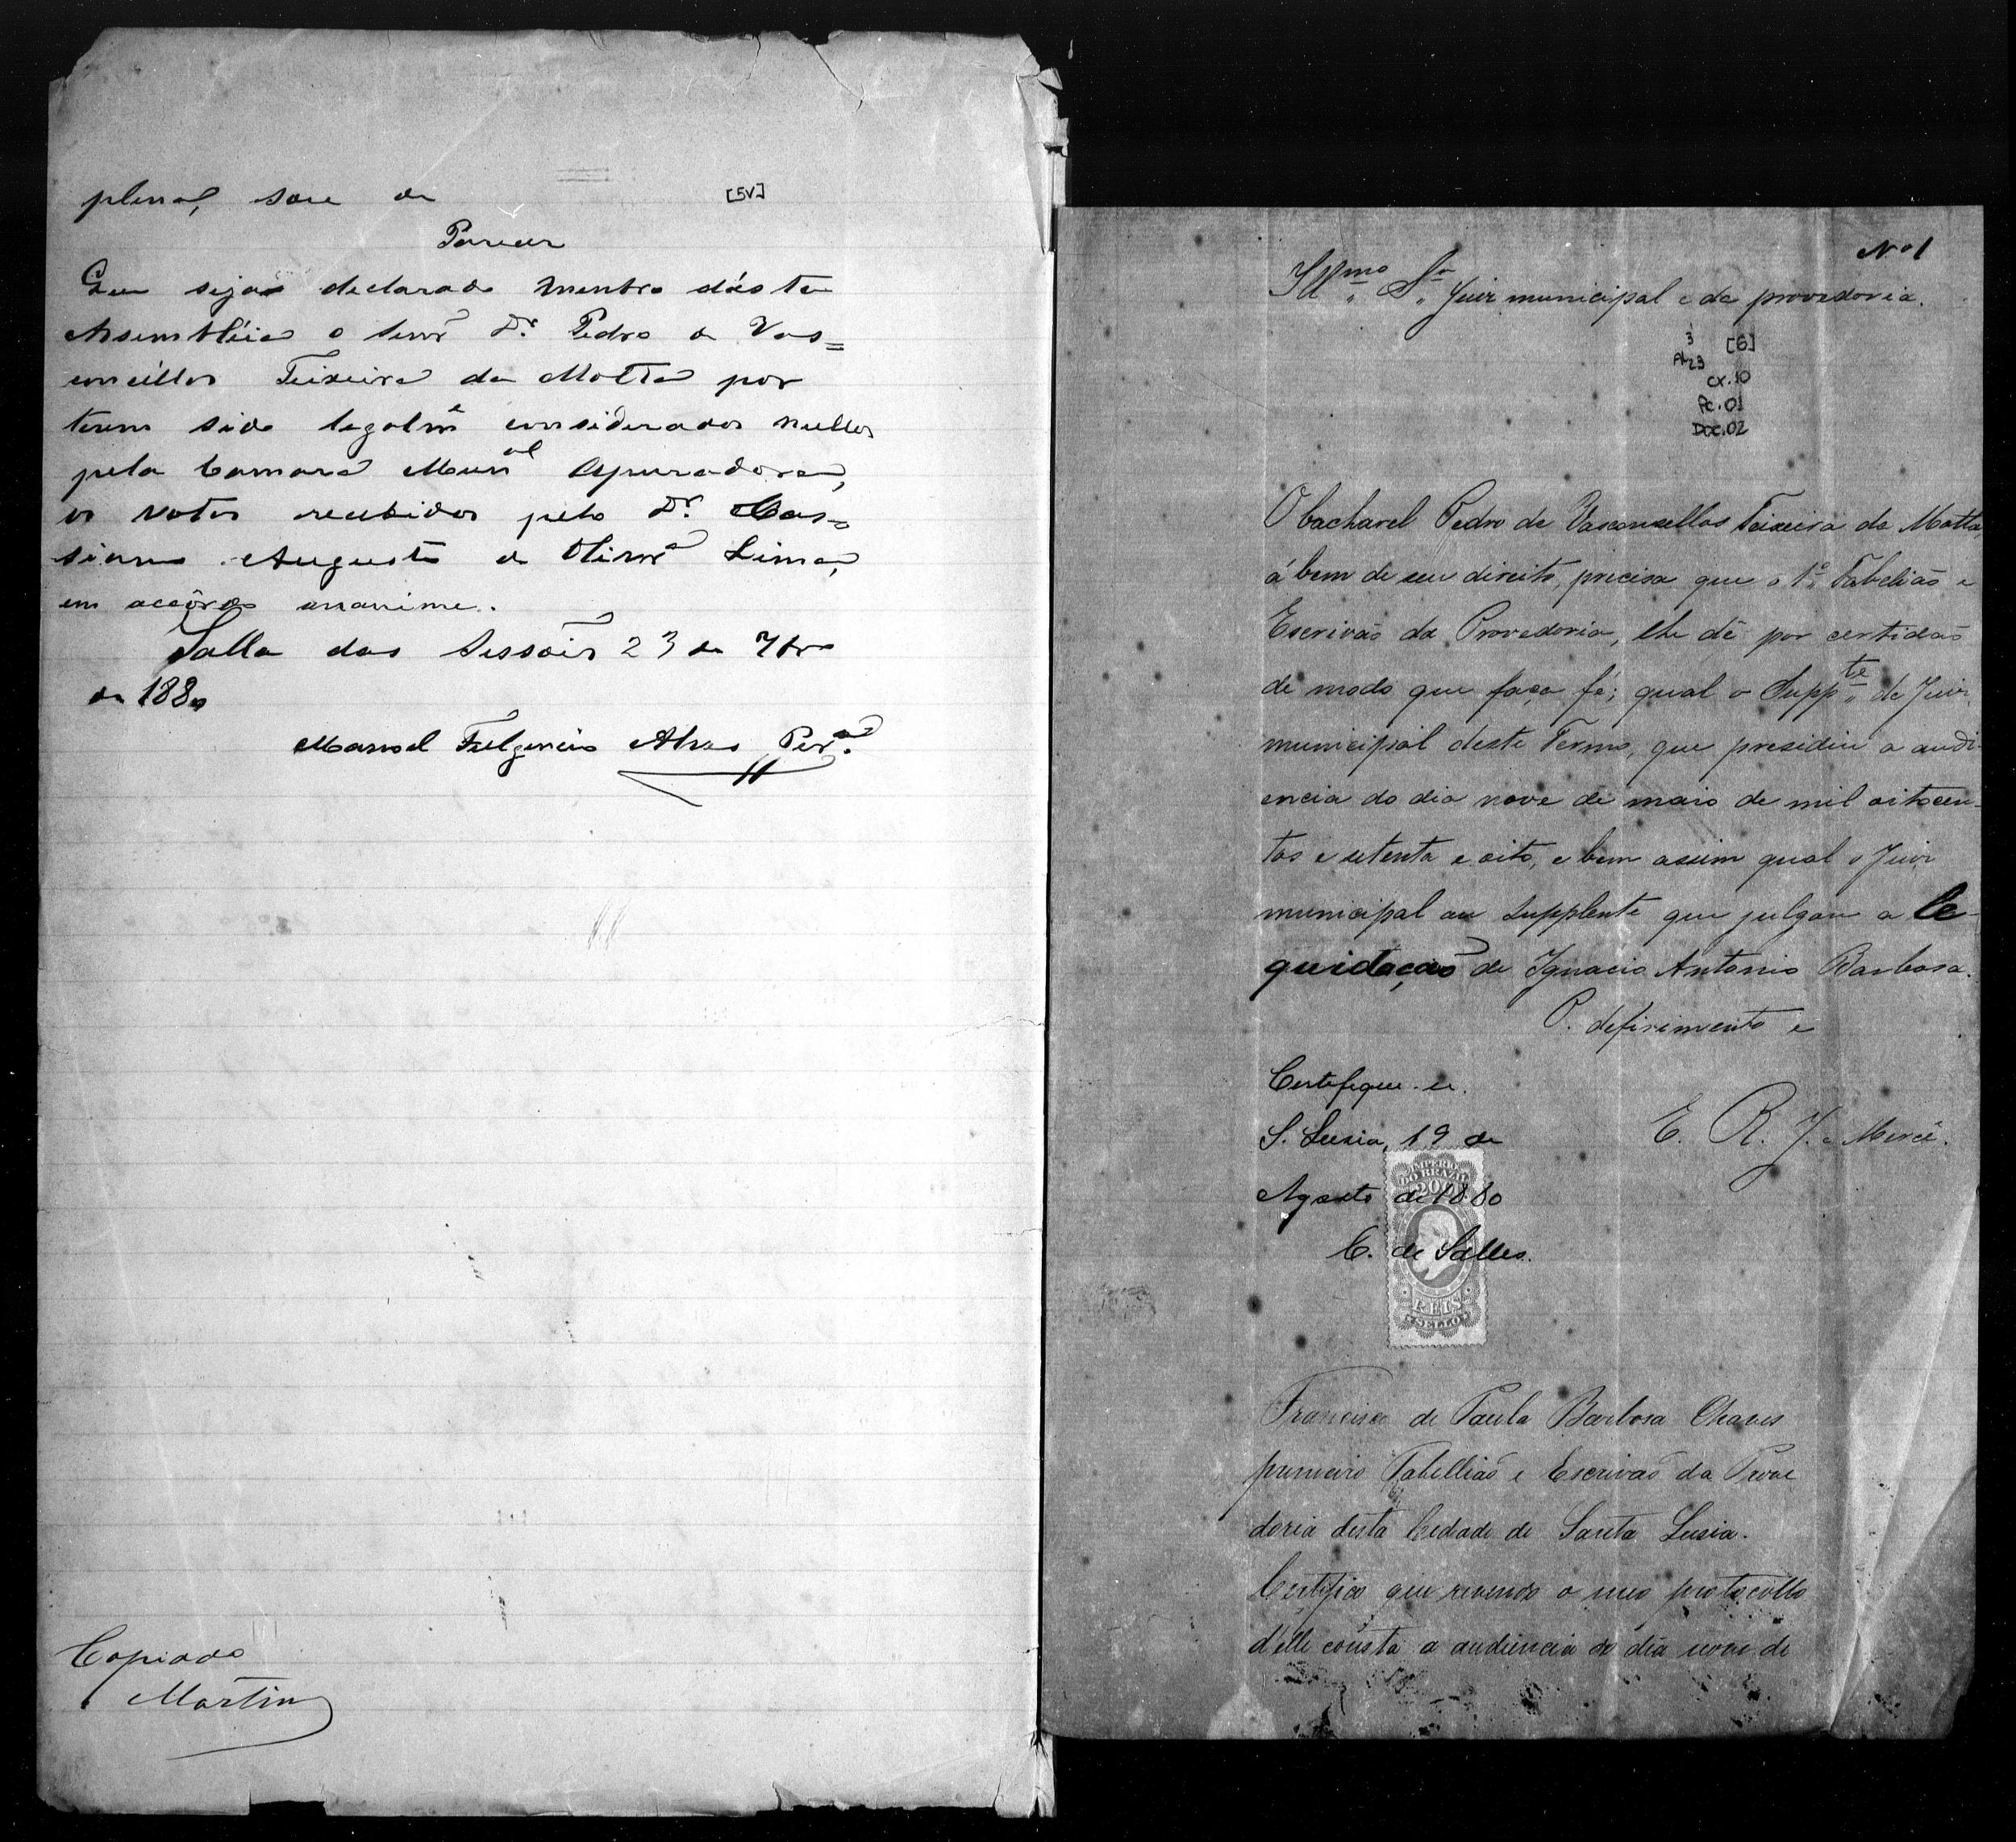 plena, sou de
[5V]
Parecer
Que seja declarado membro désta
Assembléia o Senr Dr. Pedro de Vas=
concéllos Teixeira da Motta por
terem sido legalmᵉ considerados nullos
pela Camara Munᵃˡ Apuradora,
os votos recebidos pelo Dr. Cas=
siano Augusto de Olivrᵃ Lima,
em accôrdo unanime.
Salla das Sessões 23 de 7bro
de 1880
Manoel Fulgencio Alves Perᵃ.
Copiado
Martins
Nº 1
Illmo Sr Juiz municipal e da provedoria.
3 [6]
AL23
CX.10
PC.01
DOC.02
O bacharel Pedro de Vasconcellos Teixeira da Motta,
á bem de seu direito, precisa que o 1º Tabelião e
Escrivão da Provedoria, lhe dê por certidão
de modo que faça fé; qual o Suppte de Juiz
municipal deste Termo, que presidiu a audi-
encia do dia nove de maio de mil oitocen-
tos e setenta e oito, e bem assim qual o Juiz
municipal ou supplente que julgou a le-
quidação de Ignacio Antonio Barbosa.
P. deferimento e
E. R. J. e Mercê.
Certifique-se.
S. Lusia, 19 de
Agosto de 1880
C. de Salles.
IMPERIO
DO BRAZIL
200
REIS
SELLO
Francisco de Paula Barbosa Chaves
primeiro Tabellião e Escrivão da Prove
doria desta Cidade de Santa Lusia.
Certifico que revendo o meu protocóllo
d'elle consta a audiencia do dia nove de